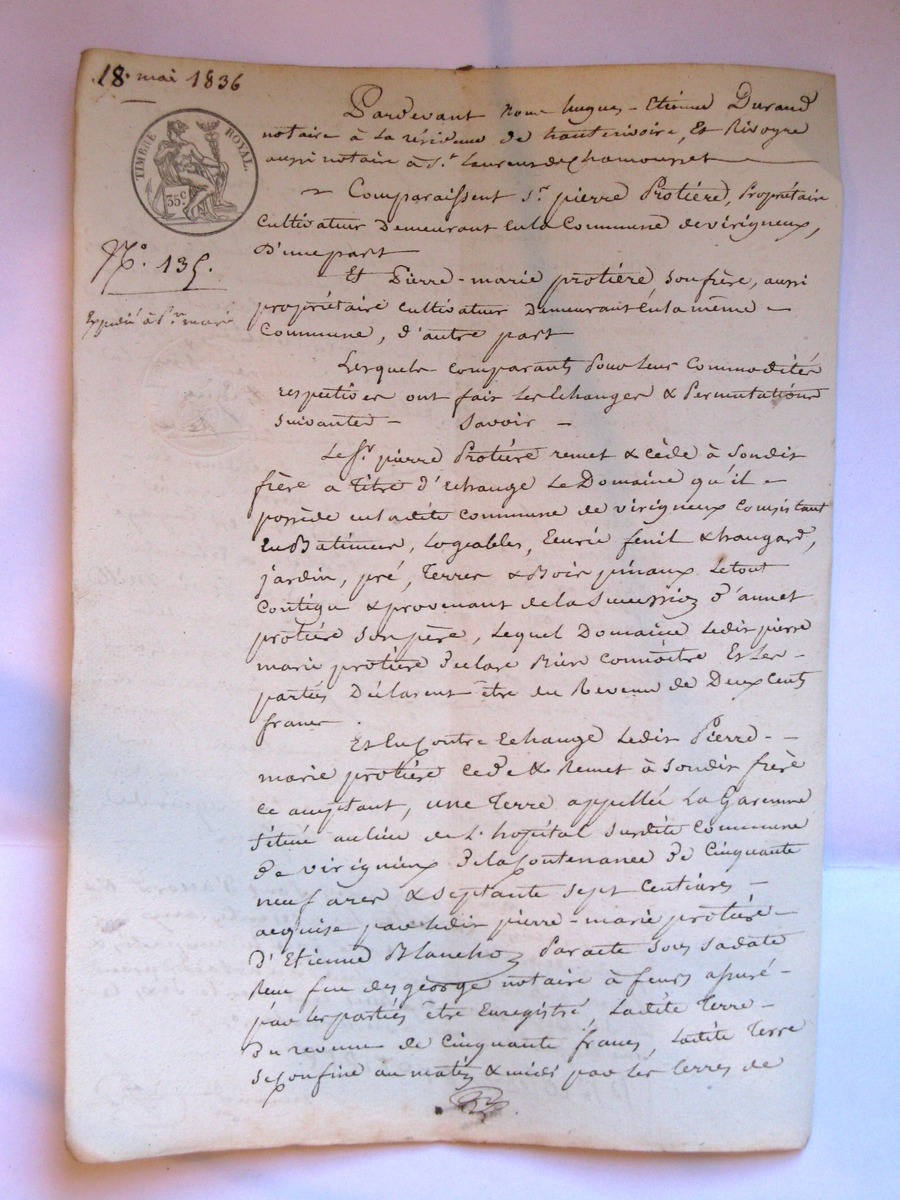 18 mai 1836
TIMBRE ROYAL
35c
Pardevant nous hugues-Etienne Durand
notaire à la résidence de hauterivoire, Et Rivoyre
aussi notaire à St. Laurent de Chamousset
Comparaissent Sr. pierre Protière, Propriétaire
cultivateur Demeurant en la Commune de virigneux,
D'une part
N.o 135.
Et Pierre-marie protière, son frère, aussi
propriétaire cultivateur Demeurant en la même
Expédié à Pre. marie
Commune, d'autre part
Lesquels comparants Pour leur Commodités
respectives ont fait les Echanges & Permutations
suivantes Savoir
Le Sr. pierre Protière remet & cède à Son dit
frère a titre d'échange Le Domaine qu'il
possède en ladite commune de virigneux Consistant
En Batiments, Logeables, Ecurie fenil & hangard,
jardin, pré, Terres & Bois pinaux Le tout
Contigu & provenant de la Succession d'annet
protière Son père, Lequel Domaine Ledit pierre
marie protière declare Bien Connoître Et Les
parties Déclarent être du Revenu de Deux Cents
francs.
Et En Contre Echange Ledit Pierre-
marie protière cede & Remet à Son dit frère
ce acceptant, une Terre appellée La Garenne
située au lieu de L'hopital Susdite Commune
de virigneux de la Contenance de Cinquante
neuf ares & septante sept Centiares
acquise par Ledit pierre-marie protière
D'Etienne Blanchoz Par acte Sous Sa date
Reçu feu des george notaire à feurs assuré
par les parties être Enregistré, Ladite Terre
Du revenu de Cinquante francs, Ladite Terre
Se Confine au matin & midi par les terres de